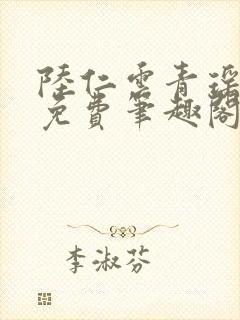 陸仁雲青瑶
免費筆趣閣
李淑芬